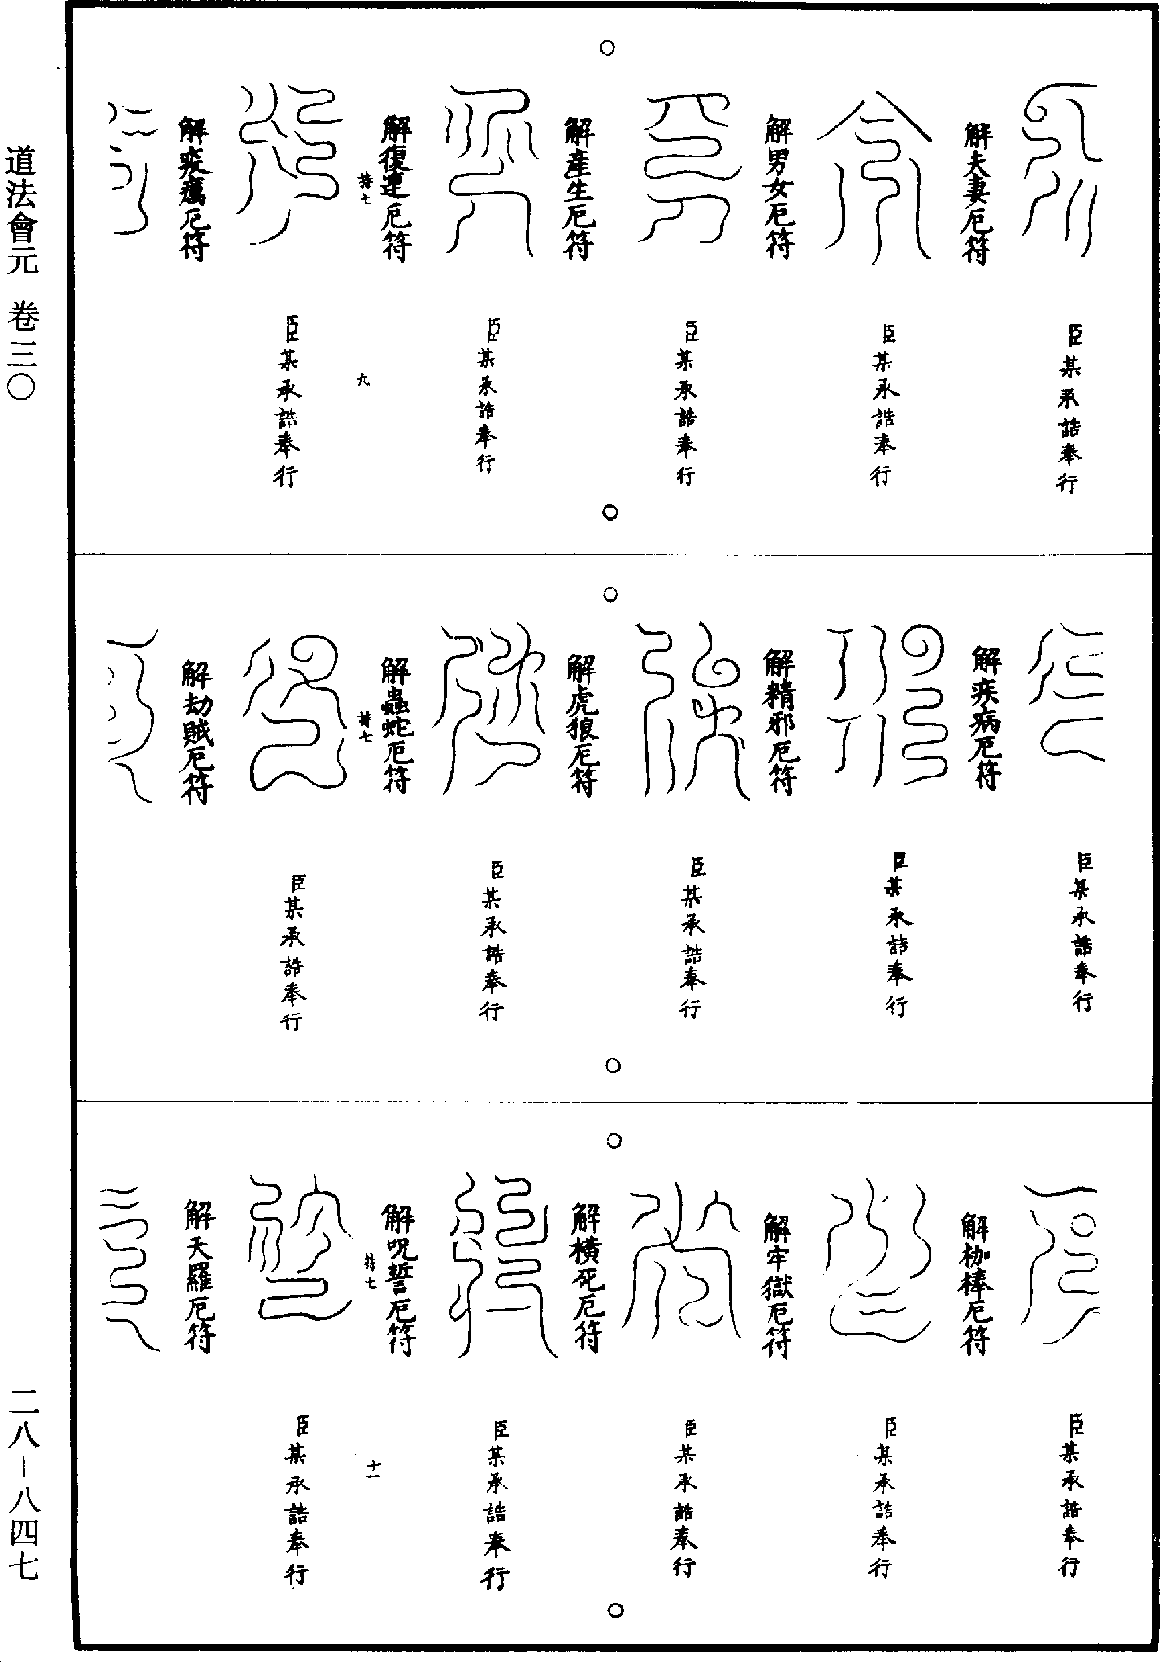 臣某承誥奉行
解夫妻厄符
臣某承誥奉行
解男女厄符
臣某承誥奉行
解產生厄符
臣某承誥奉行
解復連厄符
九
臣某承誥奉行
解疫癘厄符
臣某承誥奉行
解疾病厄符
臣某承誥奉行
解精邪厄符
臣某承誥奉行
解虎狼厄符
臣某承誥奉行
解蟲蛇厄符
臣某承誥奉行
解劫賊厄符
臣某承誥奉行
解枷棒厄符
臣某承誥奉行
解牢獄厄符
臣某承誥奉行
解橫死厄符
臣某承誥奉行
解呪誓厄符
十一
臣某承誥奉行
解天羅厄符
道法會元 卷三〇
二八－八四七